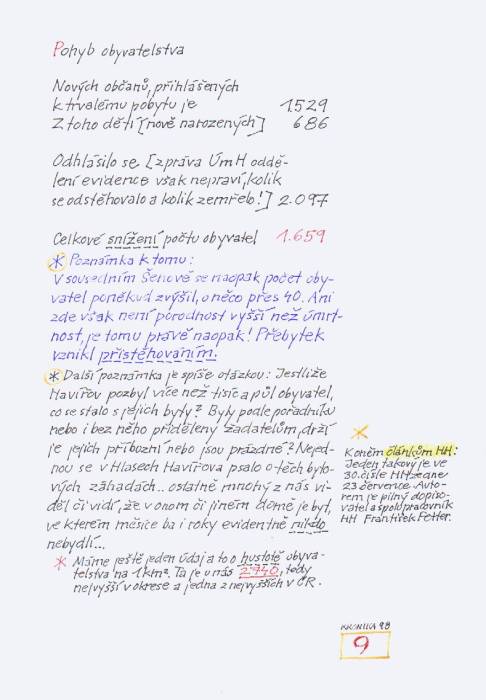 Pohyb obyvatelstva
Nových občanů, přihlášených
k trvalému pobytu je 1.529
Z toho dětí [nově narozených] 686
Odhlásilo se [zpráva ÚmH oddě-
lení evidence však nepraví, kolik
se odstěhovalo a kolik zemřelo!] 2.097
Celkové snížení počtu obyvatel 1.659
* Poznámka k tomu:
V sousedním Šenově se naopak počet oby-
vatel poněkud zvýšil, o něco přes 40. Ani
zde však není porodnost vyšší než úmrt-
nost, je tomu právě naopak! Přebytek
vznikl přistěhováním.
* Další poznámka je spíše otázkou: Jestliže
Havířov pozbyl více než tisíc a půl obyvatel,
co se stalo s jejich byty? Byly podle pořadníku
nebo i bez něho přiděleny žadatelům, drží
je jejich příbuzní nebo jsou prázdné? Nejed-
nou se v Hlasech Havířova psalo o těch byto-
vých záhadách.. ostatně mnohý z nás vi-
děl či vidí, že v onom či jiném domě je byt,
ve kterém měsíce ba i roky evidentně nikdo
nebydlí...
* Máme ještě jeden údaj a to o hustotě obyva-
telstva na 1 km². Ta je u nás 2.740, tedy
nejvyšší v okrese a jedna z nejvyšších v ČR.
*
K oněm článkům HH:
Jeden takový je ve
30. čísle HH ze dne
23 července. Auto-
rem je pilný dopiso-
vatel a spolupracovník
HH František Fetter.
KRONIKA 98
9